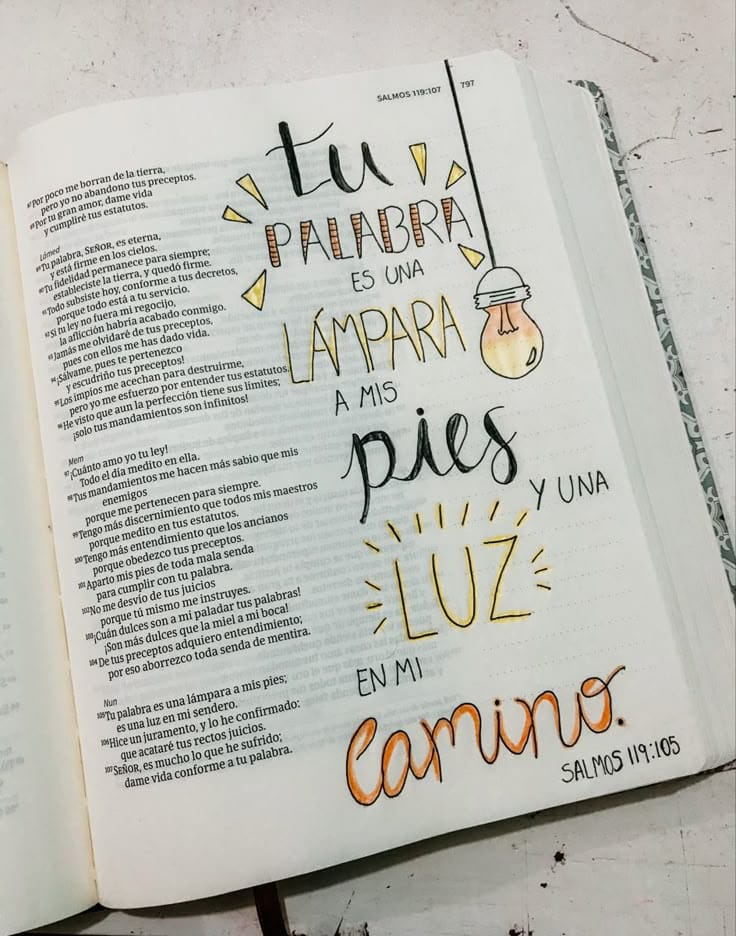 SALMOS 119:107 797
⁸⁷Por poco me borran de la tierra,
pero yo no abandono tus preceptos.
⁸⁸Por tu gran amor, dame vida
y cumpliré tus estatutos.
Lámed
⁸⁹Tu palabra, SEÑOR, es eterna,
y está firme en los cielos.
⁹⁰Tu fidelidad permanece para siempre;
estableciste la tierra, y quedó firme.
⁹¹Todo subsiste hoy, conforme a tus decretos,
porque todo está a tu servicio.
⁹²Si tu ley no fuera mi regocijo,
la aflicción habría acabado conmigo.
⁹³Jamás me olvidaré de tus preceptos,
pues con ellos me has dado vida.
⁹⁴¡Sálvame, pues te pertenezco
y escudriño tus preceptos!
⁹⁵Los impíos me acechan para destruirme,
pero yo me esfuerzo por entender tus estatutos.
⁹⁶He visto que aun la perfección tiene sus límites;
¡solo tus mandamientos son infinitos!
Mem
⁹⁷¡Cuánto amo yo tu ley!
Todo el día medito en ella.
⁹⁸Tus mandamientos me hacen más sabio que mis
enemigos
porque me pertenecen para siempre.
⁹⁹Tengo más discernimiento que todos mis maestros
porque medito en tus estatutos.
¹⁰⁰Tengo más entendimiento que los ancianos
porque obedezco tus preceptos.
¹⁰¹Aparto mis pies de toda mala senda
para cumplir con tu palabra.
¹⁰²No me desvío de tus juicios
porque tú mismo me instruyes.
¹⁰³¡Cuán dulces son a mi paladar tus palabras!
¡Son más dulces que la miel a mi boca!
¹⁰⁴De tus preceptos adquiero entendimiento;
por eso aborrezco toda senda de mentira.
Nun
¹⁰⁵Tu palabra es una lámpara a mis pies;
es una luz en mi sendero.
¹⁰⁶Hice un juramento, y lo he confirmado:
que acataré tus rectos juicios.
¹⁰⁷SEÑOR, es mucho lo que he sufrido;
dame vida conforme a tu palabra.
tu
PALABRA
ES UNA
LÁMPARA
A MIS
pies
Y UNA
LUZ
EN MI
camino.
SALMOS 119:105